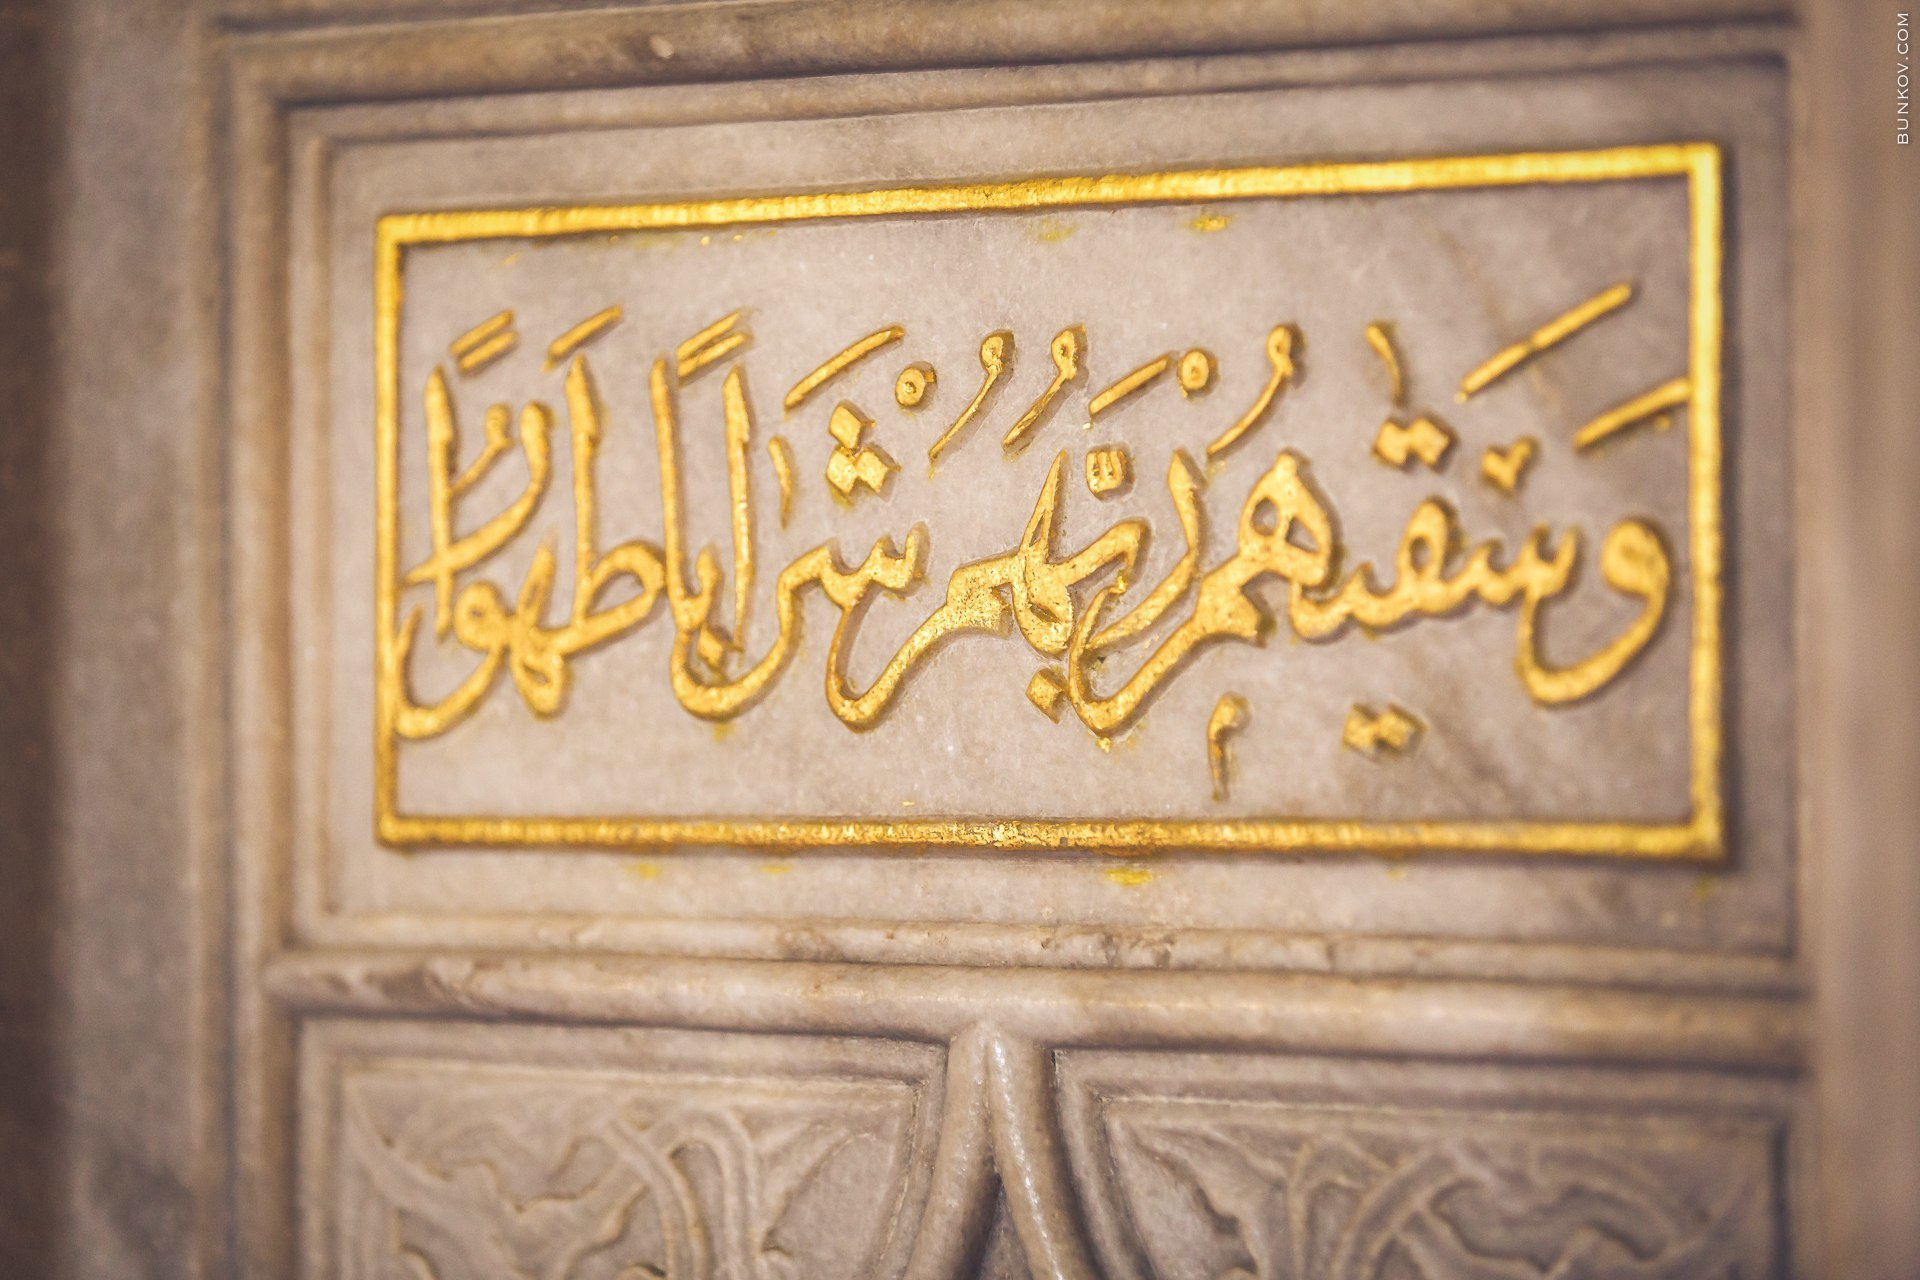 وَسَقٰيهُمْ رَبُّهُمْ شَرَابًا طَهُورًا
BUNKOV.COM